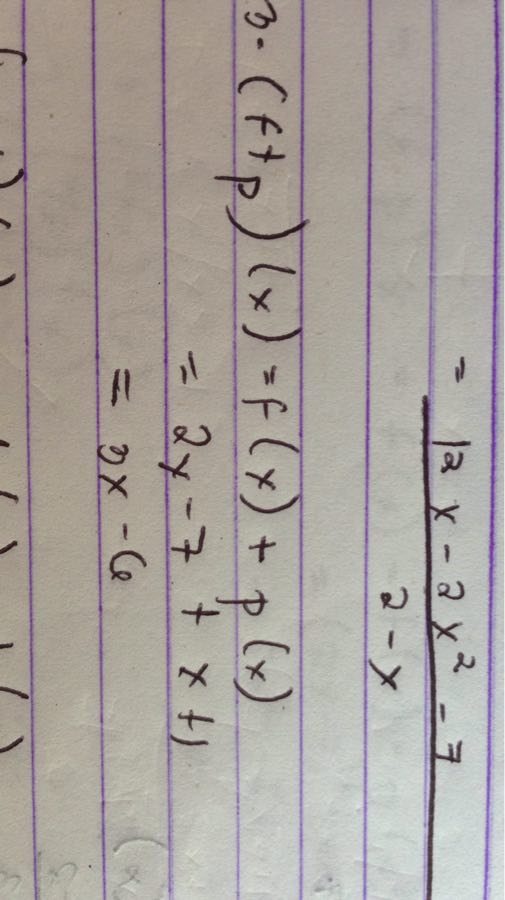 = 12x - 2x² - 7
2 - x
3. (f+p)(x) = f(x) + p(x)
= 2x - 7 + x + 1
= 3x - 6